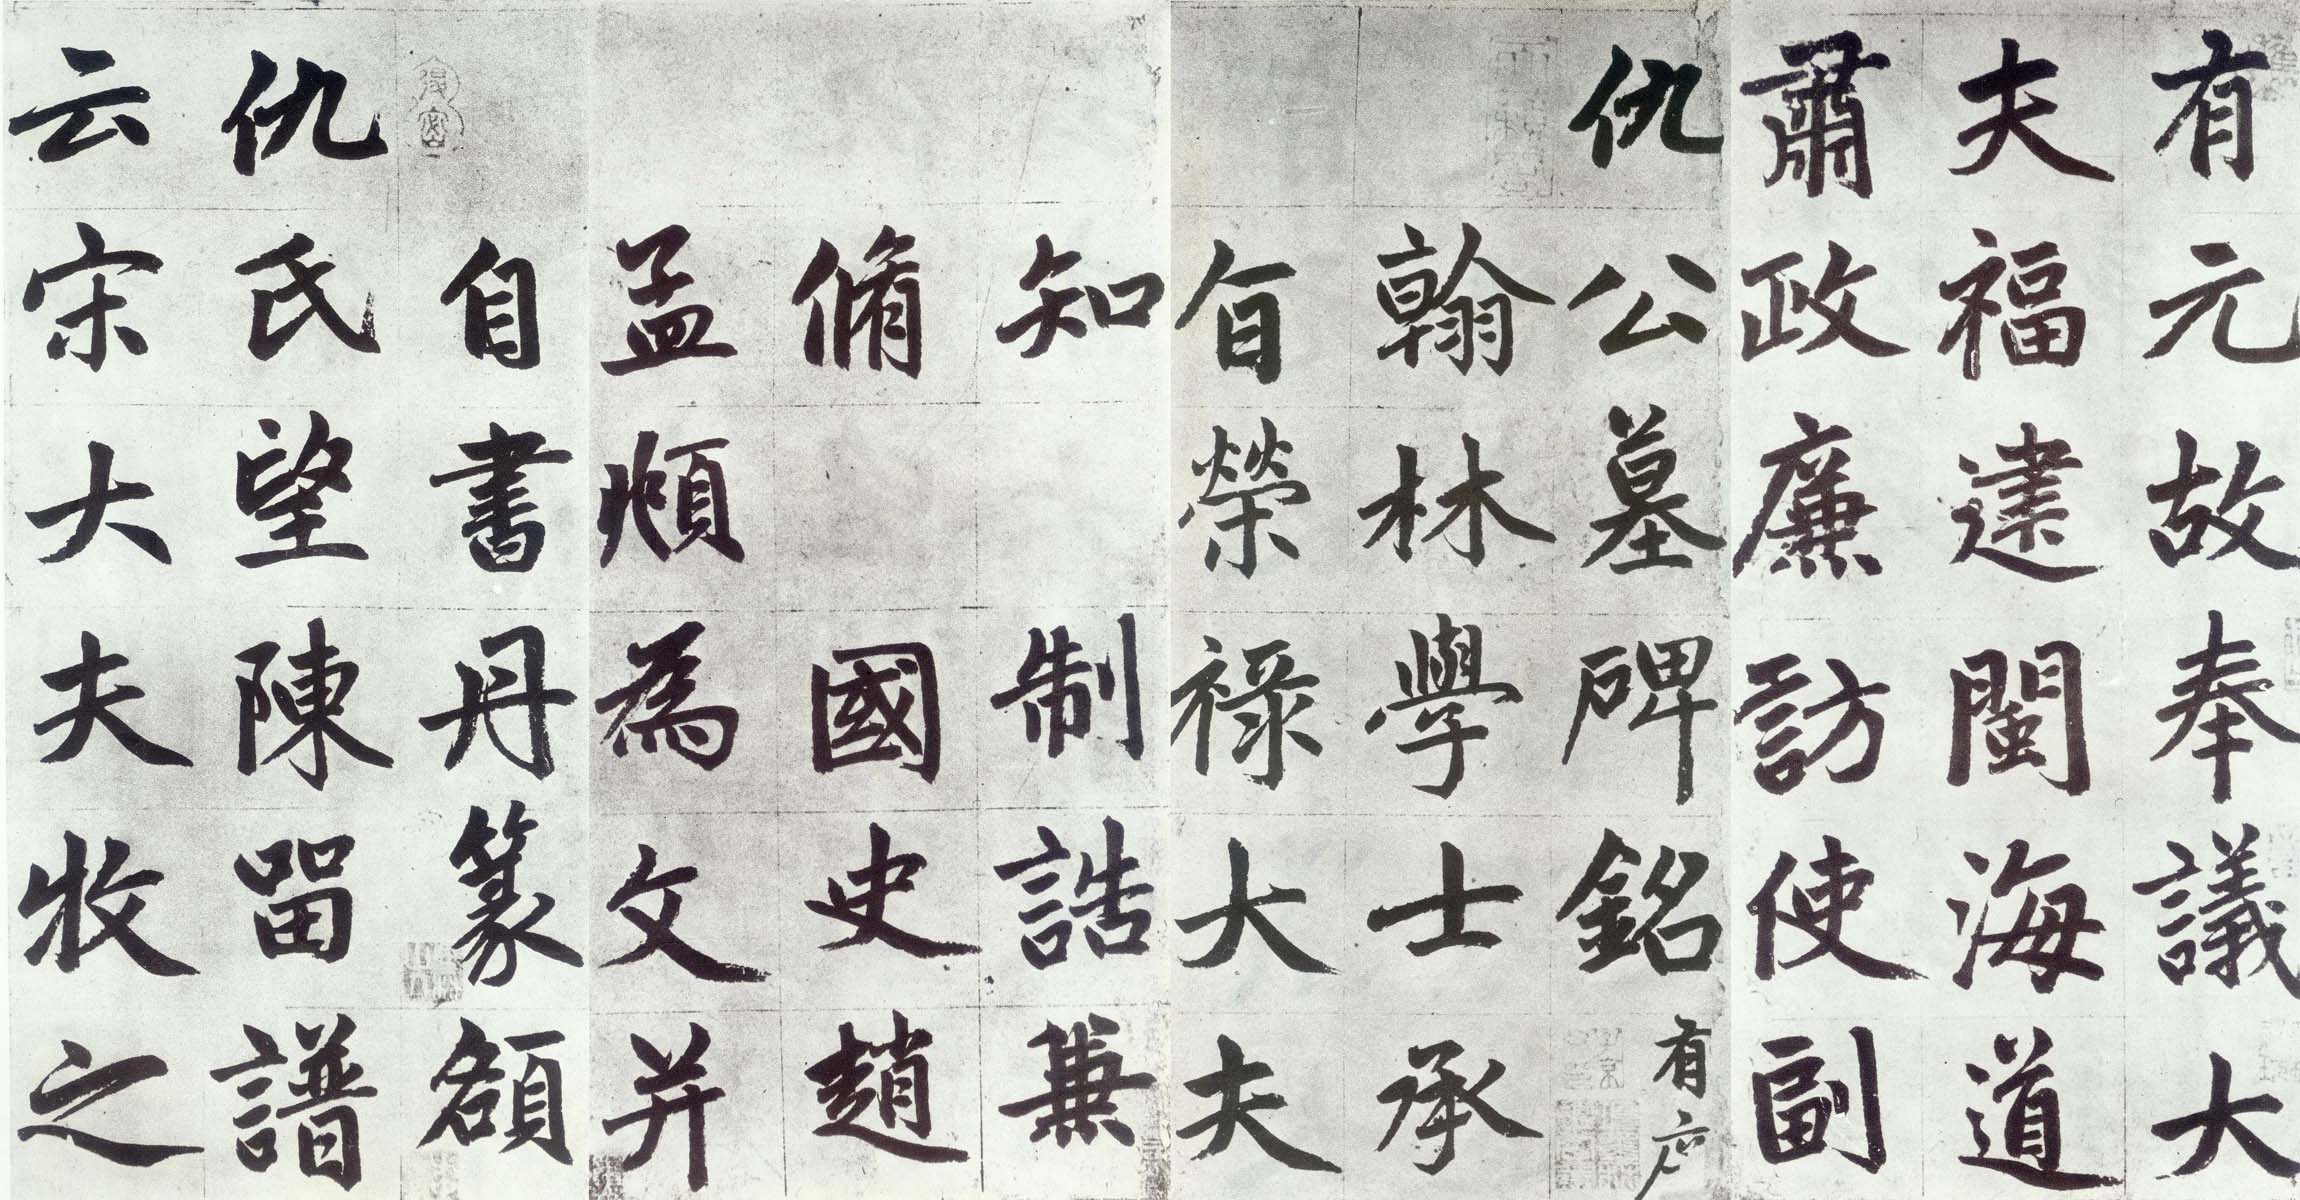 有元故奉議大
夫福建閩海道
肅政廉訪使副
仇公墓碑銘有序
翰林學士承
旨榮祿大夫
知制誥兼
脩國史趙
孟頫為文并
自書丹篆額
仇氏望陳留譜
云宋大夫牧之